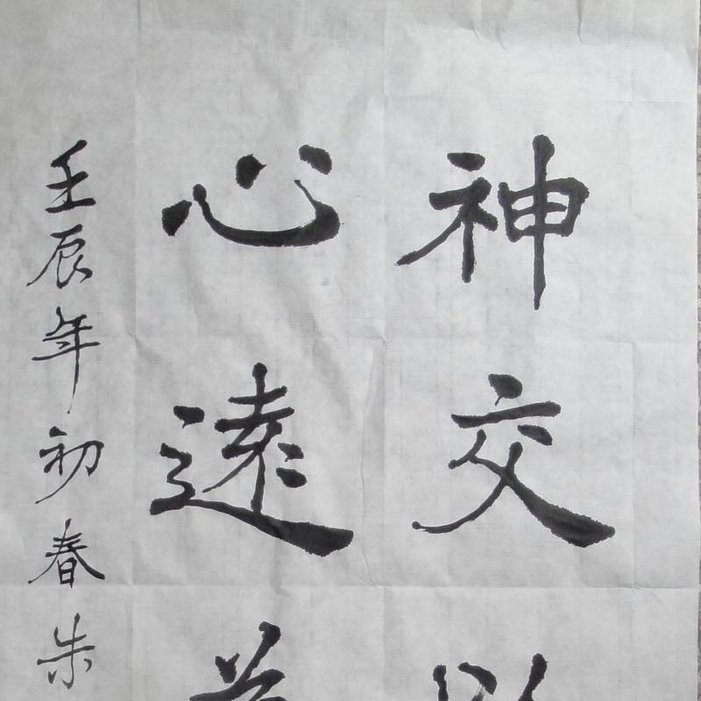 神交以
心遠
壬辰年初春朱